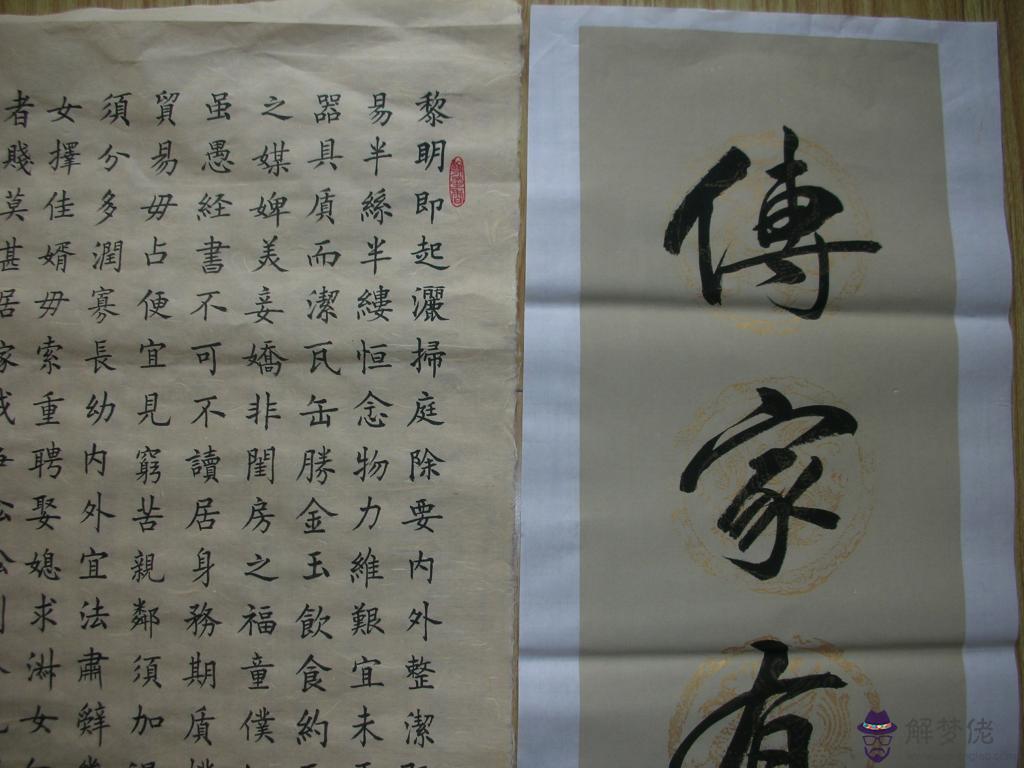 傳家有
黎明即起灑掃庭除要內外整潔
易半絲半縷恒念物力維艱宜未
器具貭而潔瓦缶勝金玉飲食約
之媒婢美妾嬌非閨房之福童僕
虽愚経書不可不讀居身務期貭樸
貿易毋占便宜見窮苦親鄰須加
須分多潤寡長幼内外宜法肅辭
女擇佳婿毋索重聘娶媳求淋女
者賤莫甚居家戒
解梦佬